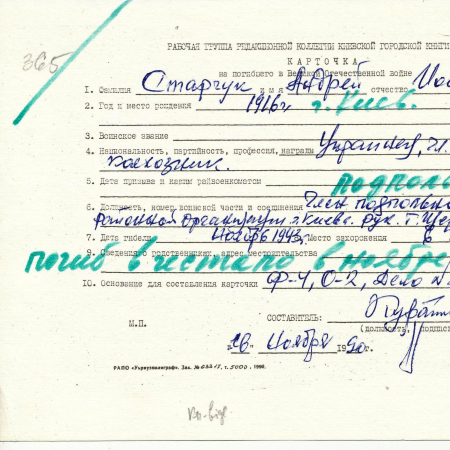 365
РАБОЧАЯ ГРУППА РЕДАКЦИОННОЙ КОЛЛЕГИИ КИЕВСКОЙ ГОРОДСКОЙ КНИГИ
КАРТОЧКА
на погибшего в Великой Отечественной войне
1. Фамилия Старчук имя Андрей отчество
2. Год и место рождения 1916г г. Киев.
3. Воинское звание
4. Национальность, партийность, профессия, награды Украинец,
колхозник.
5. Дата призыва и каким райвоенкоматом
подполь
6. Должность, номер воинской части и соединения Член подпольно
районной организации г. Киева. рук. т.
7. Дата гибели Ноябрь 1943г. Место захоронения в
9. Сведения о родственниках, адрес местожительства
погиб в гестапо в ноябре
10. Основание для составления карточки Ф-4, О-2, Дело
СОСТАВИТЕЛЬ:
(должность, подпись
М.П.
"26" Ноября 1990г.
РАПО «Укрвузполиграф». Зак. т. 5000, 1990.